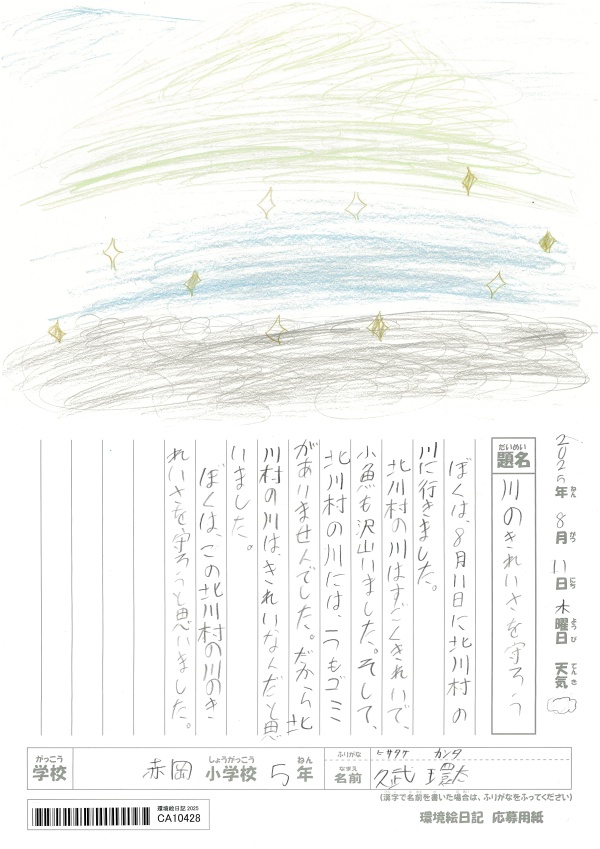 2025年 8月 11日 木曜日 天気
題名 川のきれいさを守ろう
ぼくは、8月11日に北川村の
川に行きました。
北川村の川はすごくきれいで、
小魚も沢山いました。そして、
北川村の川には、一つもゴミ
がありませんでした。だから北
川村の川は、きれいなんだと思
いました。
ぼくは、この北川村の川のき
れいさを守ろうと思いました。
がっこう 学校 赤岡 しょうがっこう 小学校 5 ねん 年
ふりがな ヒサタケ カンタ
なまえ 名前 久武 環太
(漢字で名前を書いた場合は、ふりがなをふってください)
環境絵日記 2025
CA10428
環境絵日記 応募用紙